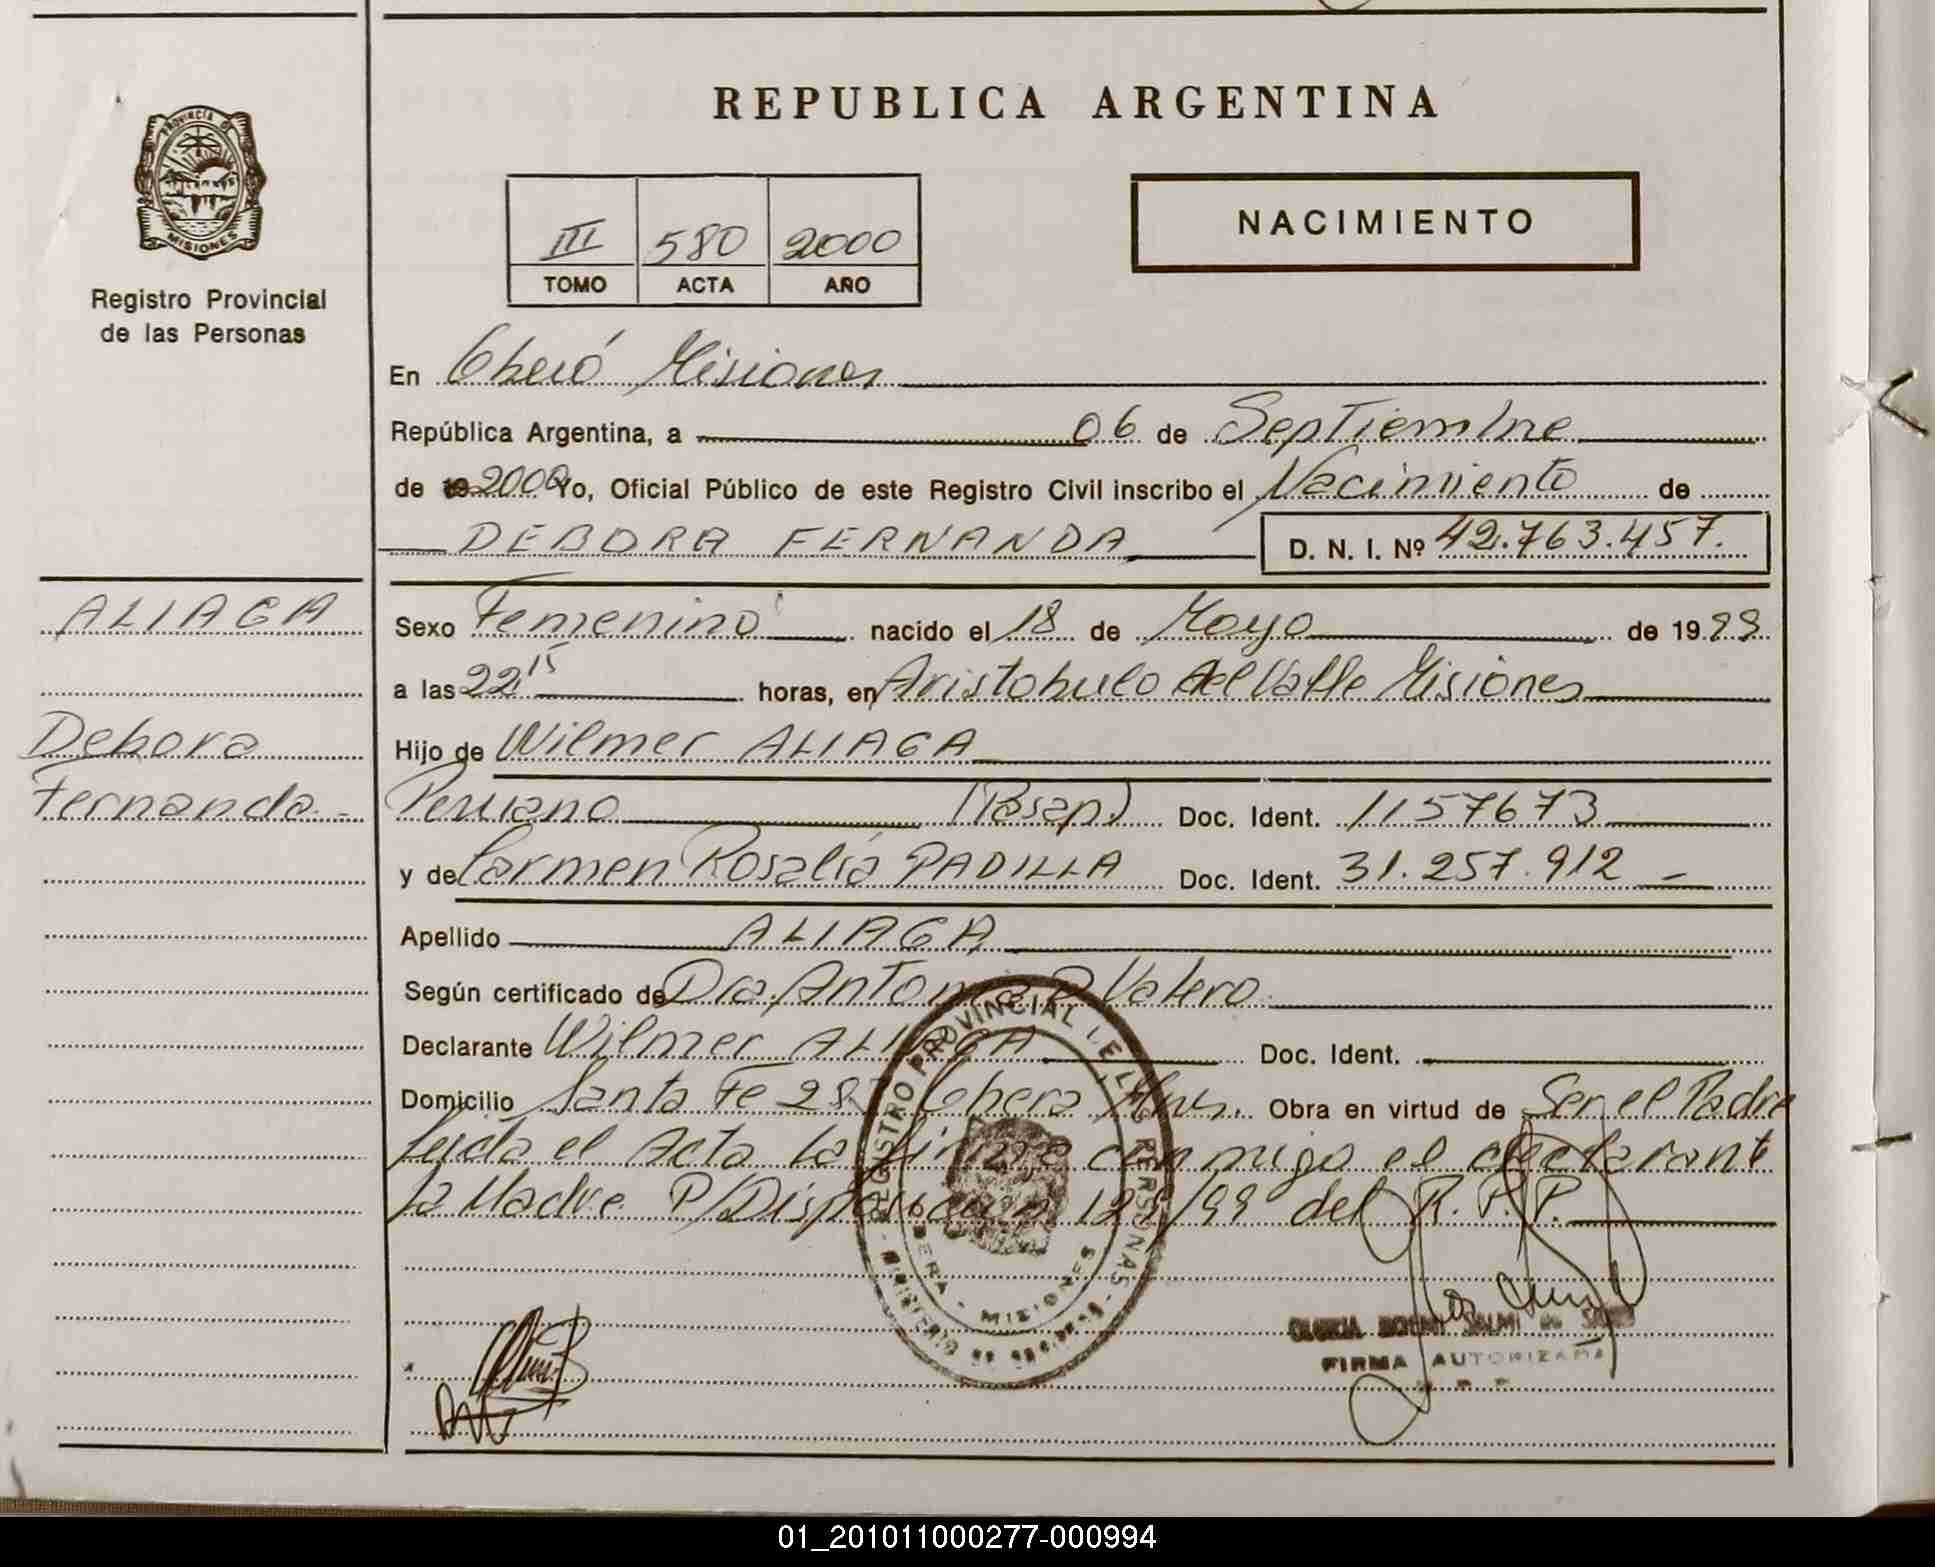 REPUBLICA ARGENTINA
PROVINCIA DE
MISIONES
Registro Provincial
de las Personas
III 580 2000
TOMO ACTA AÑO
NACIMIENTO
En Oberá Misiones
República Argentina, a 06 de Septiembre
de 19 2000 Yo, Oficial Público de este Registro Civil inscribo el Nacimiento de
DEBORA FERNANDA D. N. I. Nº 42.763.457.
ALIAGA
Debora
Fernanda.-
Sexo Femenino nacido el 18 de Mayo de 1999
a las 22 15 horas, en Aristobulo del Valle Misiones
Hijo de Wilmer ALIAGA
Peruano (Pasap) Doc. Ident. 1157673
y de Carmen Rosalía PADILLA Doc. Ident. 31.257.912 -
Apellido ALIAGA
Según certificado de Dra. Antonia D Valero
Declarante Wilmer ALIAGA Doc. Ident.
Domicilio Santa Fe Obera, Mnes. Obra en virtud de Ser el Padre
Leída el Acta la firma conmigo el declarante
la Madre. P/Disposición 129/99 del R.P.P.
REGISTRO PROVINCIAL DE LAS PERSONAS
OBERA - MISIONES
MINISTERIO DE GOBIERNO
FIRMA AUTORIZADA
01_201011000277-000994